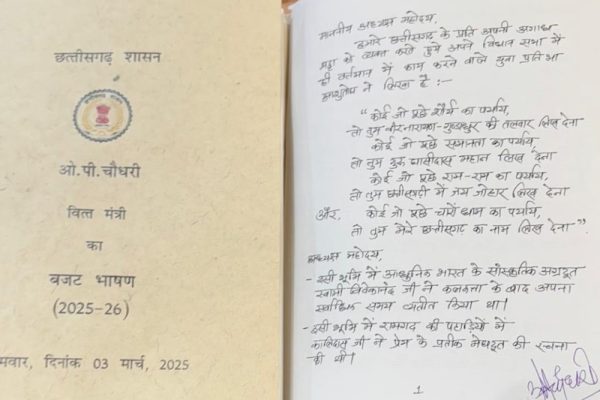 छत्तीसगढ़ शासन
ओ.पी.चौधरी
वित्त मंत्री
का
बजट भाषण
(2025-26)
मवार, दिनांक 03 मार्च, 2025
माननीय अध्यक्ष महोदय,
हमारे छत्तीसगढ़ के प्रति अपनी अगाध
श्रद्धा को व्यक्त करते हुये अपने विधान सभा में
ही वर्तमान में काम करने वाले युवा प्रतिभा
ने लिखा है :-
"कोई जो पूछे शौर्य का पर्याय,
तो तुम वीरनारायण-गुण्डाधुर की तलवार लिख देना
कोई जो पूछे समानता का पर्याय,
तो तुम गुरु घासीदास महान लिख देना
कोई जो पूछे राम-राम का पर्याय,
तो तुम छत्तीसगढ़ी में जय जोहार लिख देना
और, कोई जो पूछे चारों धाम का पर्याय,
तो तुम मेरे छत्तीसगढ़ का नाम लिख देना"
अध्यक्ष महोदय,
- इसी भूमि में आधुनिक भारत के सांस्कृतिक अग्रदूत
स्वामी विवेकानंद जी ने कलकत्ता के बाद अपना
सर्वाधिक समय व्यतीत किया था।
- इसी भूमि में रामगढ़ की पहाड़ियों में
कालिदास जी ने प्रेम के प्रतीक मेघदूत की रचना
की थी।
1